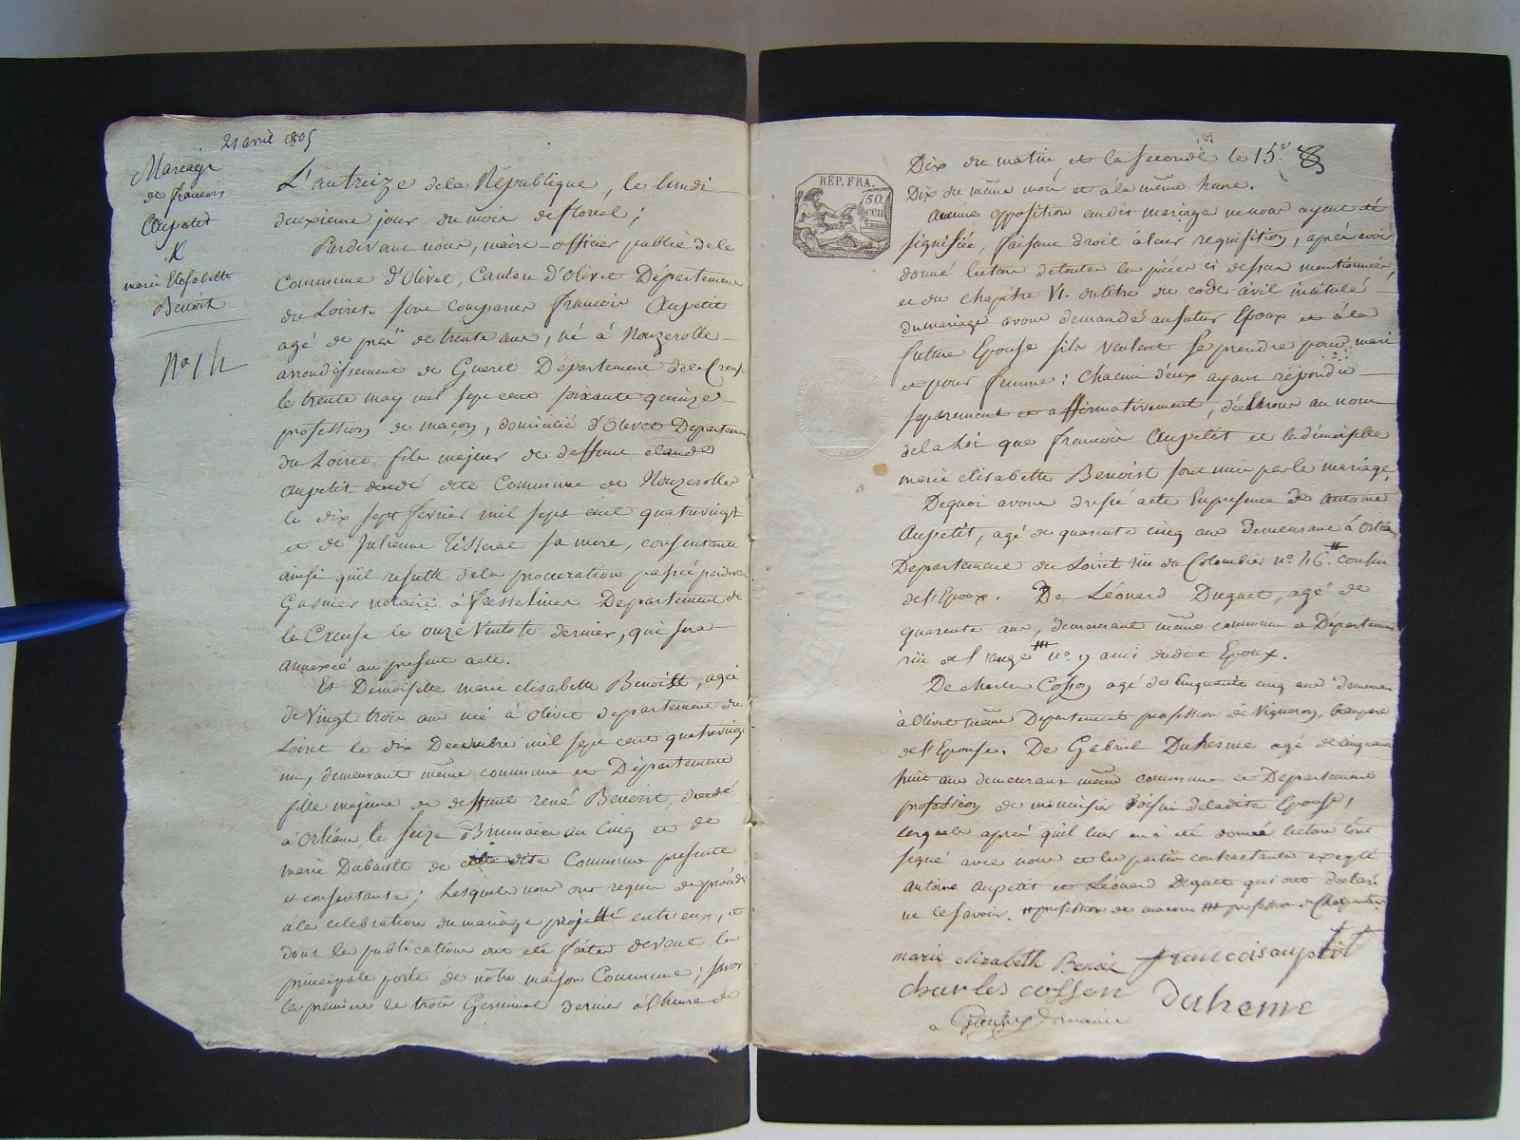 21 avril 1805
Mariage
de francois
Aupetit
&
marie Elisabette
Benoist
No 14
L'an treize de la République, le lundi
deuxieme jour du mois de floréal;
Pardevant nous, maire officier public de la
Commune d'Olivet, Canton d'Olivet Département
du Loiret sont comparus francois Aupetit
agé de près de trente ans, né à Nouzerolle
arrondissement de Gueret Département de la Creuse
le trente may mil sept cent soixante quinze
profession de maçon, domicilié d'Olivet Departement
du Loiret fils majeur de deffunt claude
Aupetit decedé dite Commune de Nouzerolle
le dix sept fevrier mil sept cent quatrevingt
et de Julienne Tisserat sa mere, consentante
ainsi qu'il resulte de la procuration passée pardevant
Gasnier notaire à Fresselines Departement de
la Creuse le onze Ventose dernier, qui sera
annexée au présent acte.
Et Demoiselle marie elisabette Benoist, agée
de Vingt trois ans née à Olivet departement du
Loiret le dix Decembre mil sept cent quatrevingt
un, demeurant même commune et Département
fille majeure de deffunt rené Benoist, decedé
à Orléans le seize Brumaire an Cinq et de
marie Dubaulle de dite Commune presente
et consentante; Lesquels nous ont requis de procéder
à la celebration du mariage projetté entre eux, et
dont les publications ont été faites devant la
principale porte de nôtre maison Commune; savoir
la premiere le trois Germinal dernier à l'heure de
REP. FRA.
50
CEN
Dix du matin et la seconde le 15
Dix du même mois et à la même heure.
Aucune opposition audit mariage ne nous ayant été
signifiée, faisant droit à leur requisition, après avoir
donné lecture de toutes les pièces ci dessus mentionnées,
et du chapitre VI. du titre du code civil intitulé
du mariage avons demandé au futur Epoux et à la
future Epouse s'ils veulent se prendre pour mari
et pour femme: chacun d'eux ayant répondu
separement et affirmativement, déclarons au nom
de la Loi que francois Aupetit et la demoiselle
marie elisabette Benoist sont unis par le mariage.
De quoi avons dressé acte en presence de Antoine
Aupetit, agé de quarante cinq ans demeurant à Orléans
Département du Loiret rue du Colombier no 46 # cousin
de l'Epoux. De Léonard Duguet, agé de
quarante ans, demeurant même commune et Departement
rüe de l'ange ### no 9 ami dudit Epoux.
De charles Cosson agé de Cinquante cinq ans demeurant
à Olivet même Departement profession de Vigneron, beaupere
de l'Epouse. De Gabriel Duhesme agé de cinquante
huit ans demeurant même commune et Departement
profession de menuisier voisin de ladite Epouse,
lesquels après qu'il leur en a été donné lecture l'ont
signé avec nous et les parties contractantes excepté
Antoine Aupetit et Léonard Duguet qui ont declaré
ne le savoir. # profession de macon ### profession de Charpentier
marie elizabeth Benoit francois aupetit
charles cosson duheme